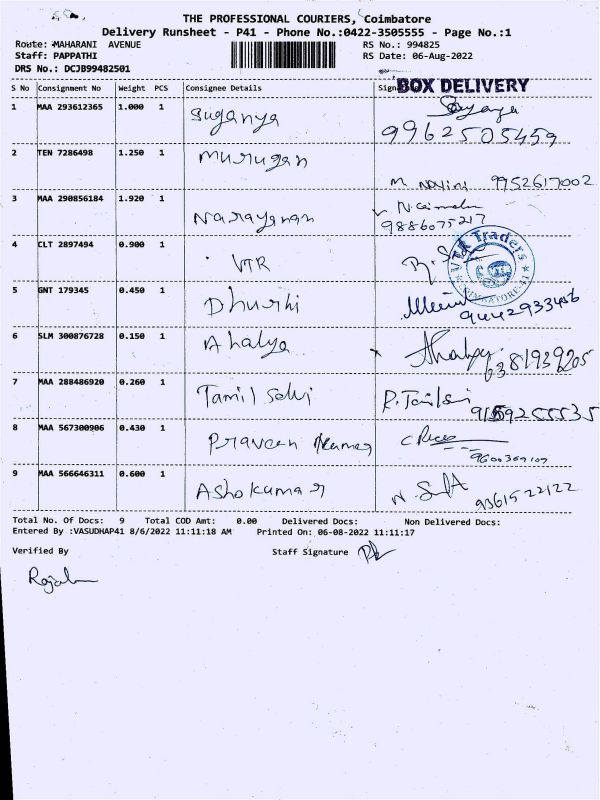 THE PROFESSIONAL COURIERS, Coimbatore
Delivery Runsheet - P41 - Phone No.:0422-3505555 - Page No.:1
Route: MAHARANI AVENUE RS No.: 994825
Staff: PAPPATHI RS Date: 06-Aug-2022
DRS No.: DCJB99482501
BOX DELIVERY
S No Consignment No Weight PCS Consignee Details Sign
1 MAA 293612365 1.000 1 Suganya
9962505459
2 TEN 7286498 1.250 1 Murugan
9952617002
3 MAA 290856184 1.920 1 Narayanan
9886075217
4 CLT 2897494 0.900 1 VTR
VTR Traders
COIMBATORE-41
5 GNT 179345 0.450 1 Dhurhi
9442933456
6 SLM 300876728 0.150 1 Ahalya
6381939205
7 MAA 288486920 0.260 1 Tamil Selvi
8 MAA 567300906 0.430 1 Praveen Kumar
9600369109
9 MAA 566646311 0.600 1 Ashokumar
9361522122
Total No. Of Docs: 9 Total COD Amt: 0.00 Delivered Docs: Non Delivered Docs:
Entered By :VASUDHAP41 8/6/2022 11:11:18 AM Printed On: 06-08-2022 11:11:17
Verified By Staff Signature